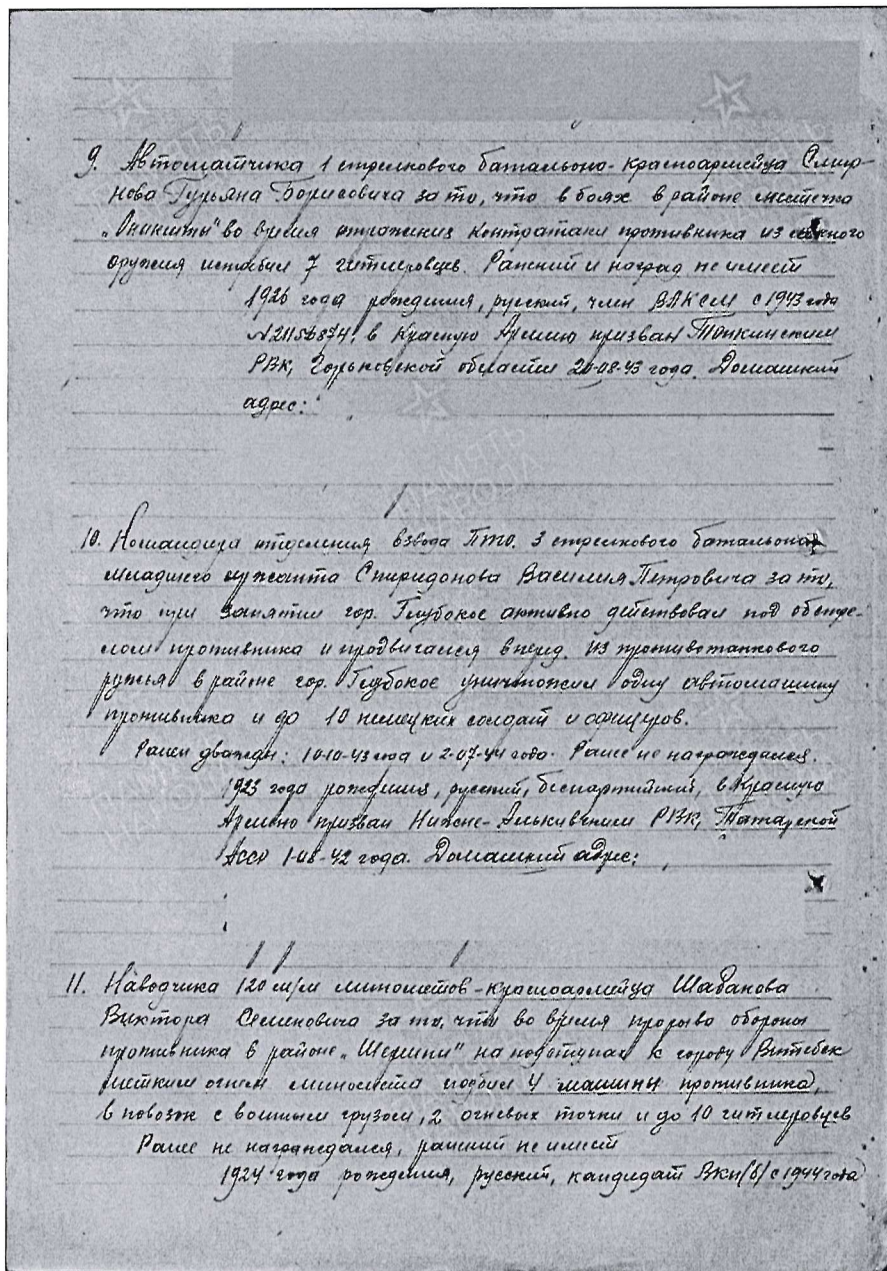 9. Автоматчика 1 стрелкового батальона - красноармейца Смир-
нова Гурьяна Борисовича за то, что в боях в районе местечка
„Оникшты" во время отражения контратаки противника из личного
оружия истребил 7 гитлеровцев. Ранений и наград не имеет
1926 года рождения, русский, член ВЛКСМ с 1943 года
в Красную Армию призван
РВК, Горьковской области 20-08-43 года. Домашний
адрес:
10. Командира отделения взвода ПТО. 3 стрелкового батальона
младшего сержанта Спиридонова Василия Петровича за то,
что при занятии гор. Глубокое активно действовал под обстре-
лом противника и продвигался вперед. из противотанкового
ружья в районе гор. Глубокое уничтожил одну автомашину
противника и до 10 немецких солдат и офицеров.
Ранен дважды: 10-10-43 года и 2-07-44 года. Ранее не награждался.
1923 года рождения, русский, беспартийный, в Красную
Армию призван РВК, Татарской
АССР 42 года. Домашний адрес:
11. Наводчика 120 м/м минометов - красноармейца Шабанова
Виктора Семеновича за то, что во время прорыва обороны
противника в районе „ " на подступах к городу Витебск
метким огнем миномета подбил 4 машины противника,
6 повозок с военным грузом, 2 огневых точки и до 10 гитлеровцев
Ранее не награждался, ранений не имеет
1924 года рождения, русский, кандидат ВКП(б) с 1944 года
ПАМЯТЬ
НАРОДА